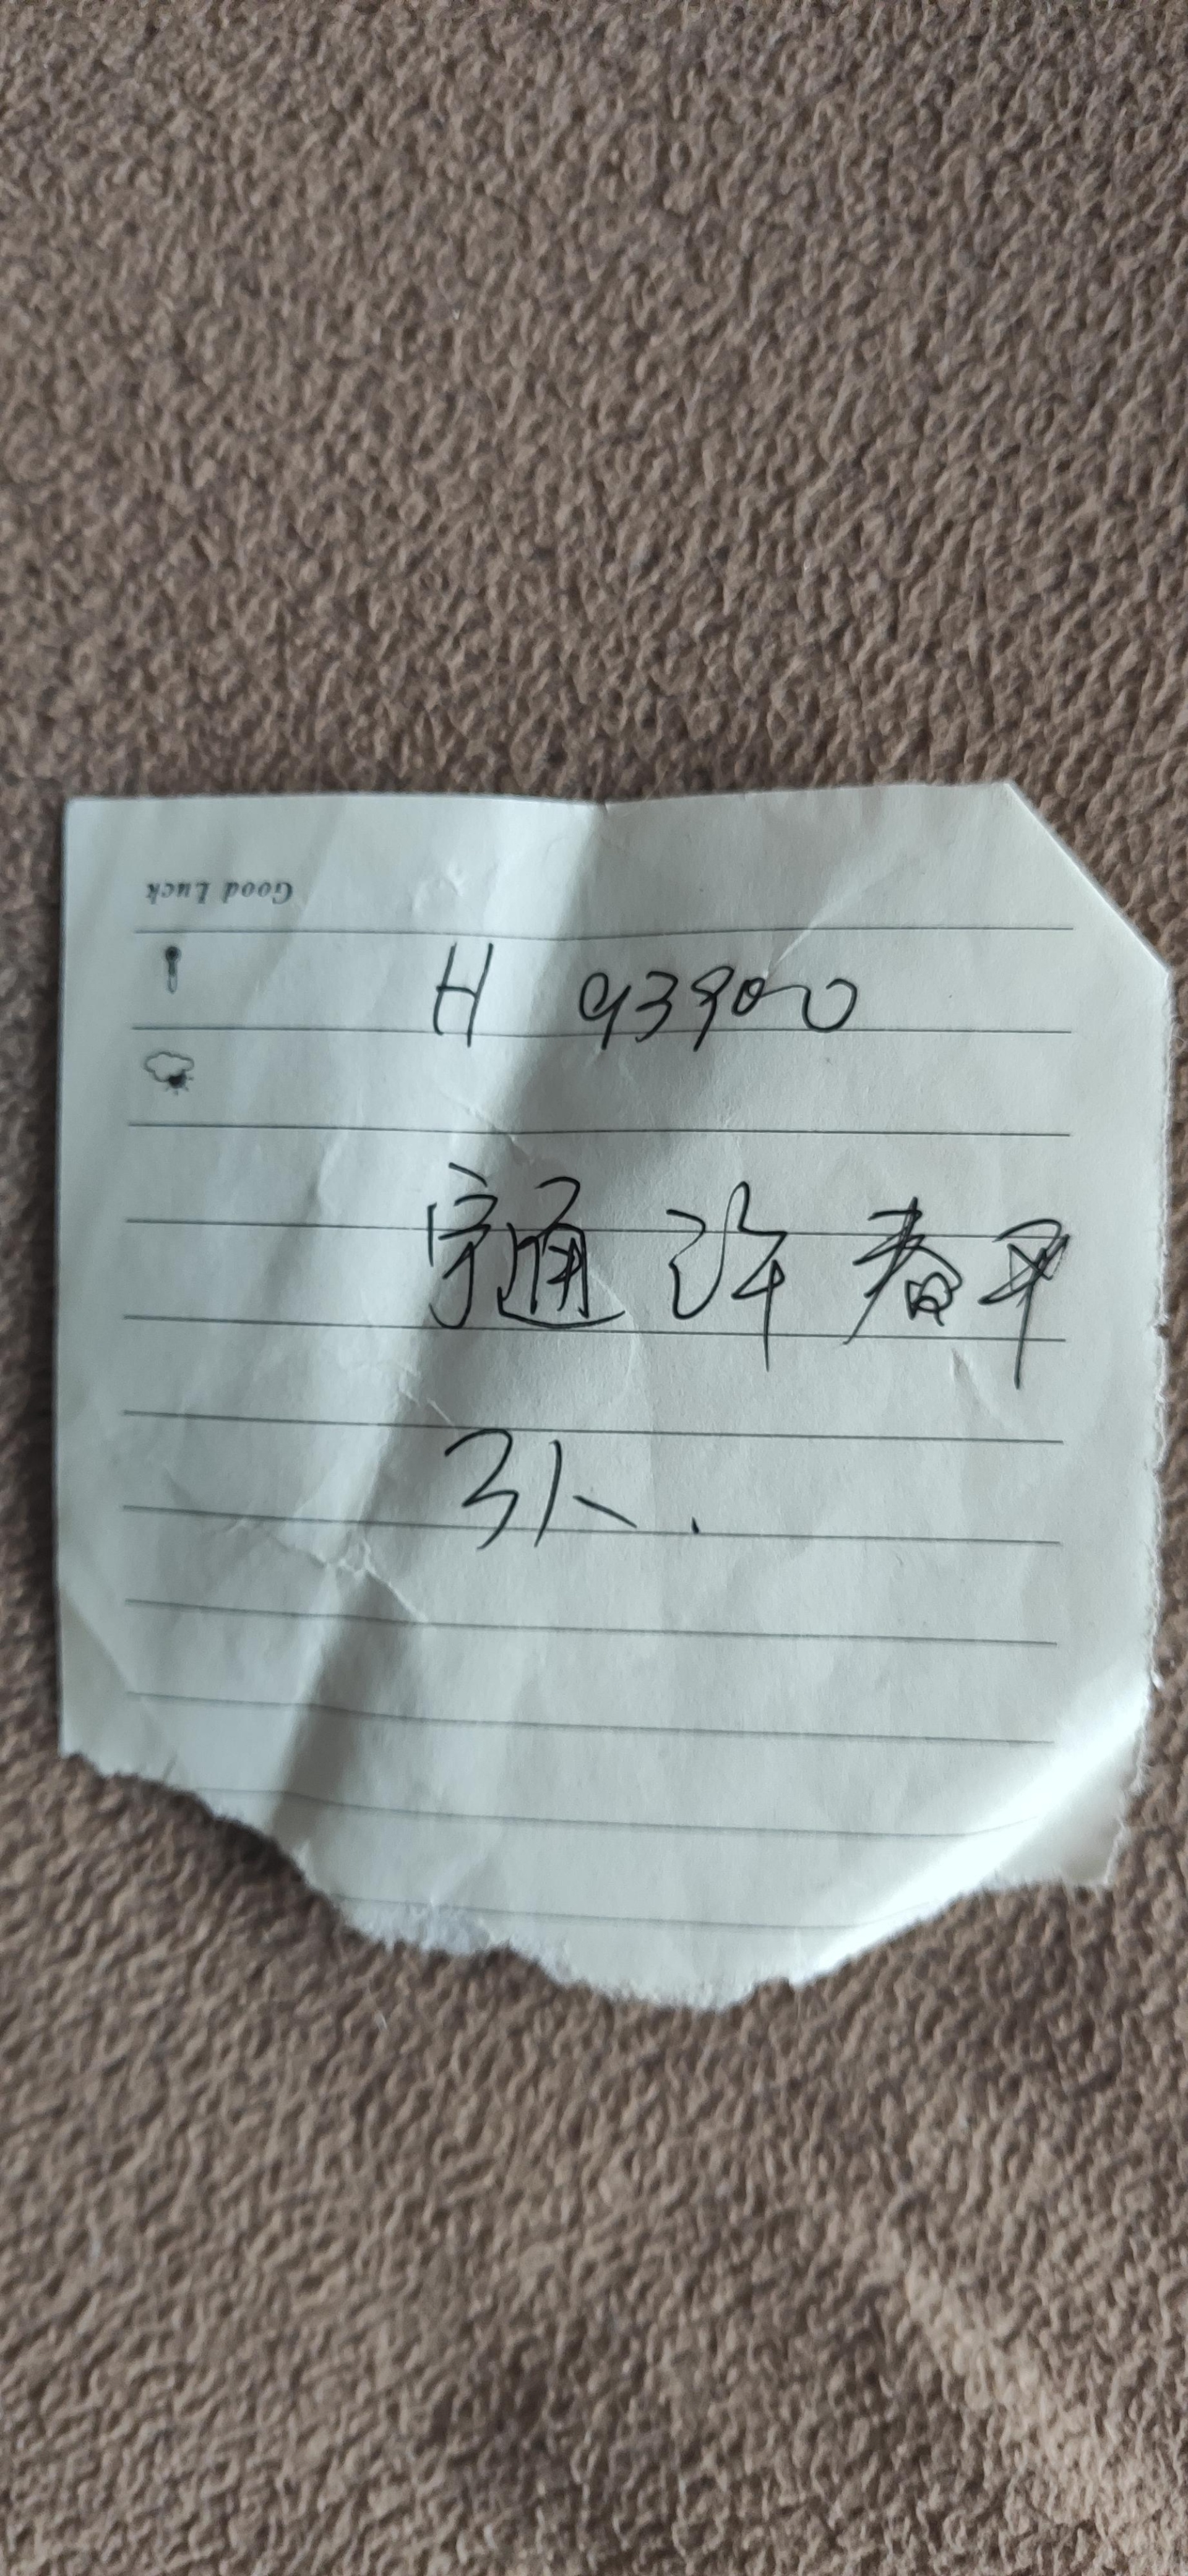 Good Luck
H 93900
宇通 许春早
31人.